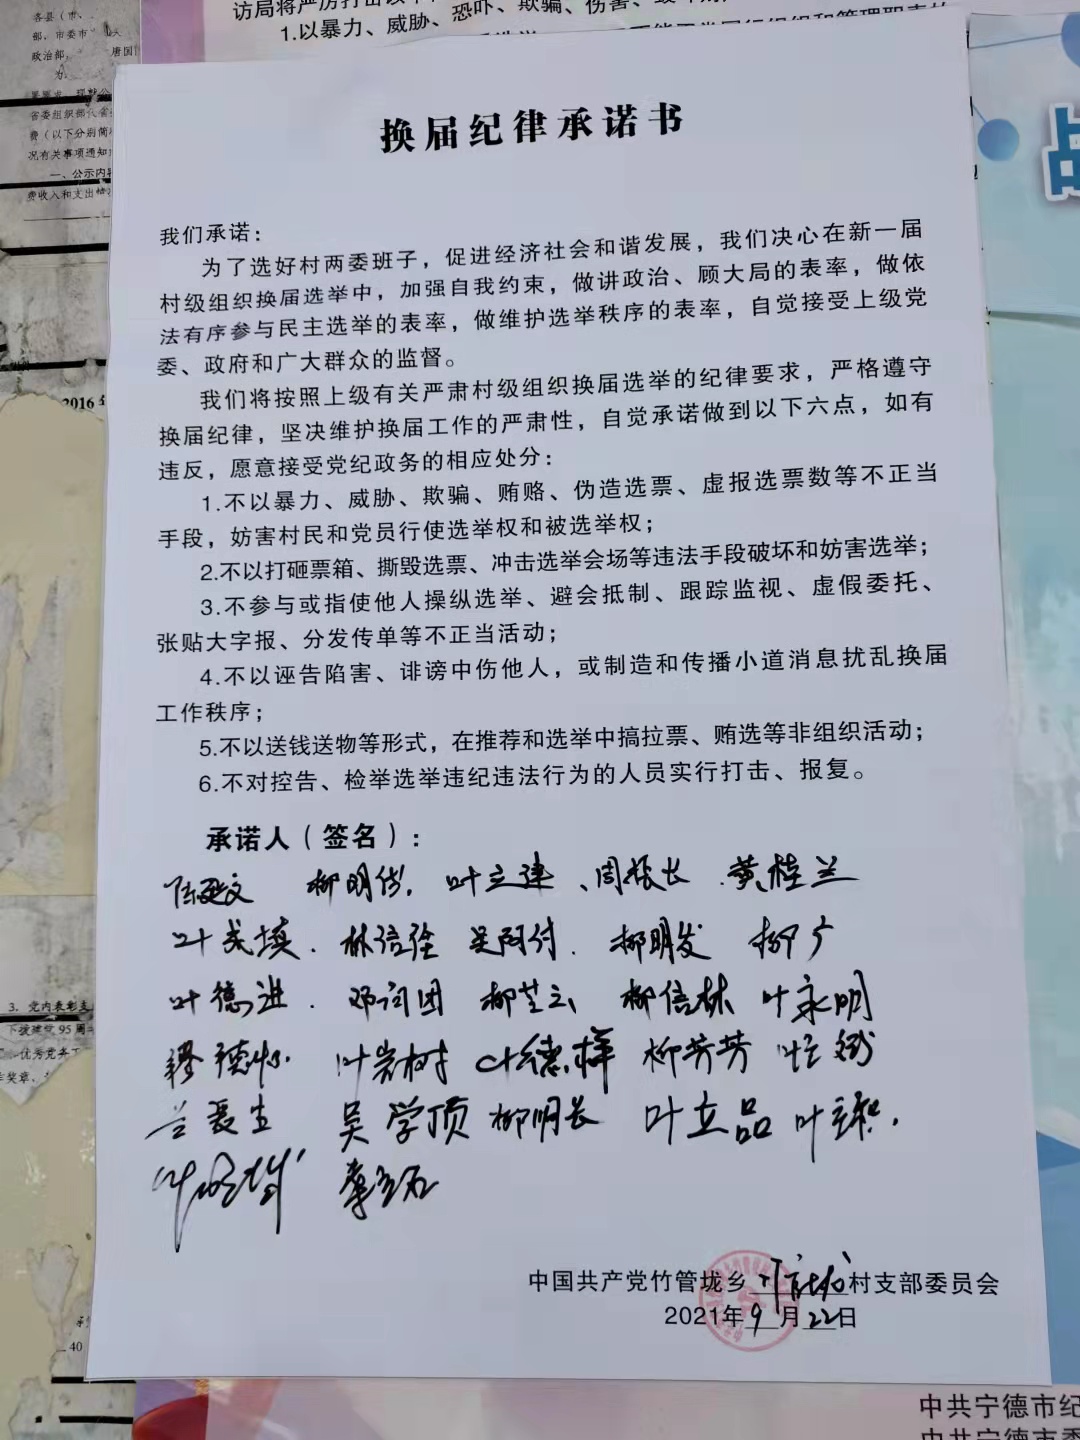 访局将严厉打击以下
1.以暴力、威胁、恐吓、欺骗、伤害、
各县(市、
部、市委市
政治部,
唐国
为
省委组织部
费(以下分别简称
况有关事项通知
一、公示内容
费收入和支出情况
2016年
换届纪律承诺书
我们承诺:
为了选好村两委班子,促进经济社会和谐发展,我们决心在新一届
村级组织换届选举中,加强自我约束,做讲政治、顾大局的表率,做依
法有序参与民主选举的表率,做维护选举秩序的表率,自觉接受上级党
委、政府和广大群众的监督。
我们将按照上级有关严肃村级组织换届选举的纪律要求,严格遵守
换届纪律,坚决维护换届工作的严肃性,自觉承诺做到以下六点,如有
违反,愿意接受党纪政务的相应处分:
1.不以暴力、威胁、欺骗、贿赂、伪造选票、虚报选票数等不正当
手段,妨害村民和党员行使选举权和被选举权;
2.不以打砸票箱、撕毁选票、冲击选举会场等违法手段破坏和妨害选举;
3.不参与或指使他人操纵选举、避会抵制、跟踪监视、虚假委托、
张贴大字报、分发传单等不正当活动;
4.不以诬告陷害、诽谤中伤他人,或制造和传播小道消息扰乱换届
工作秩序;
5.不以送钱送物等形式,在推荐和选举中搞拉票、贿选等非组织活动;
6.不对控告、检举选举违纪违法行为的人员实行打击、报复。
承诺人(签名):
叶立建、周振长 黄桂兰
柳明发 柳广
叶德进. 柳信林 叶永明
叶岩树 叶德样 柳芳芳
吴学顶 柳明长 叶立品
中国共产党竹管垅乡 村支部委员会
2021年9月22日
3.党内表彰
95周
优秀党务工
40
中共宁德市纪
中共宁德市委